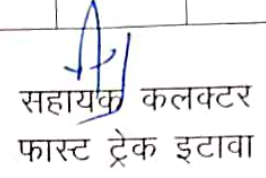 सहायक कलक्टर
फास्ट ट्रेक इटावा